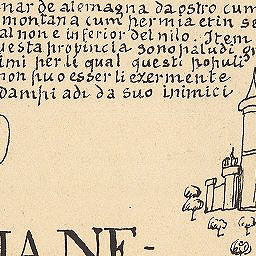 nar de alemagna da ostro cum
montana cum permia et in se
al non e inferior del nilo. Item
uesta propincia sono paludi gr
imi per li qual questi populi
non puo esser li exermente
dampi adi da suo inimici
IANE-